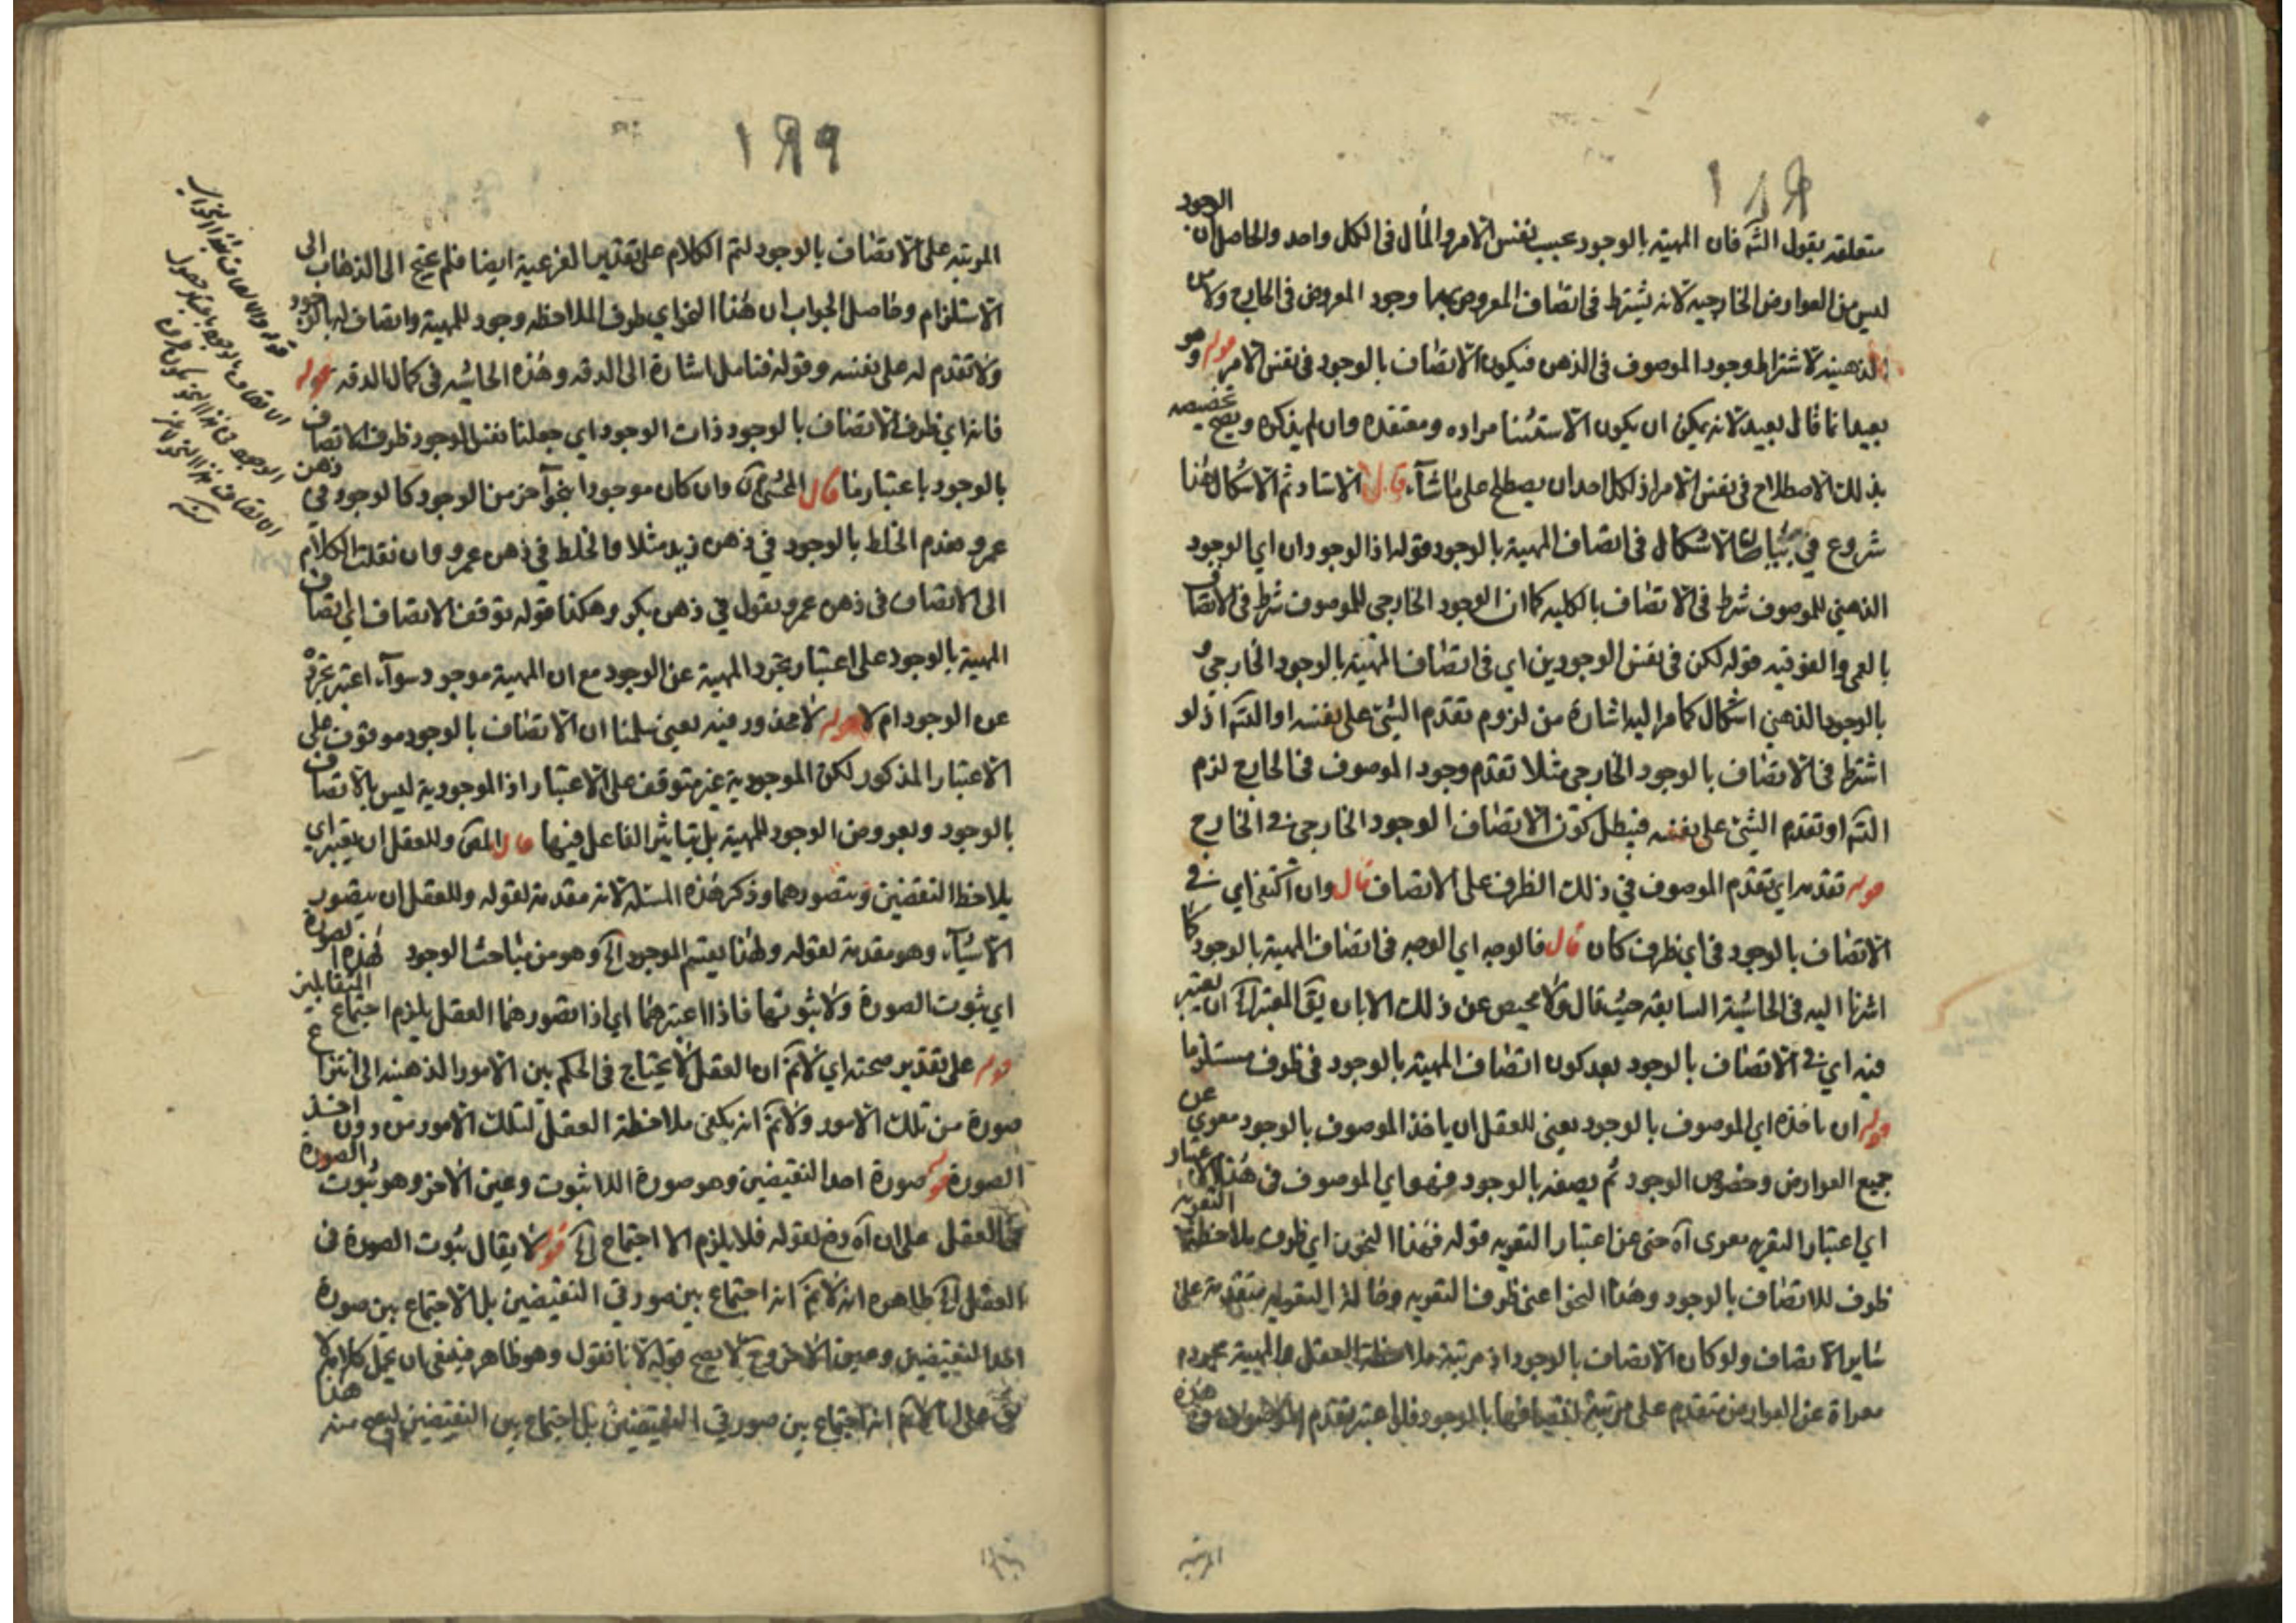 متعلقه بقول الشه فان المهية بالوجود بحسب نفس الامر والمآل فى الكل واحد والحاصل ان الوجود
ليس من العوارض الخارجيه لانه يشترط فى اتصاف المعروض بها وجود المعروض فى الخارج ولا من
الذهنية لاشتراط وجود الموصوف فى الذهن فيكون الاتصاف بالوجود فى نفس الامر قوله وهو
بعيد انما قال بعيد لانه يمكن ان يكون الاستثنا مراده ومعتقده وان لم يذكره ويصح تخصيصه
بذلك الاصطلاح فى نفس الامر اذ لكل احد ان يصطلح على ما شآء قال الاستاد ثم الاشكال هنا
شروع في بيان الاشكال فى اتصاف المهية بالوجود قوله اذا الوجود ان اي الوجود
الذهني للموصوف شرط فى الاتصاف بالكليه كما ان الوجود الخارجى للموصوف شرط فى الاتصاف
بالعمى والفوقيه قوله لكن فى نفس الوجودين اي فى اتصاف المهية بالوجود الخارجي و
بالوجود الذهني اشكال كما مر اليه اشارة من لزوم تقدم الشئ على نفسه او التسه اذ لو
اشترط فى الاتصاف بالوجود الخارجى مثلا تقدم وجود الموصوف فى الخارج لزم
التسه او تقدم الشئ على نفسه فبطل كون الاتصاف الوجود الخارجى فى الخارج
قوله تقدمه اي تقدم الموصوف في ذلك الظرف على الاتصاف قال وان اكتفى اي فى
الاتصاف بالوجود فى اي ظرف كان قال فالوجه اي الوجه فى اتصاف المهية بالوجود كما
اشرنا اليه فى الحاشية السابقه حيث قال ولا محيص عن ذلك الا بان يق المعتبر الخ ان يعتبر
فيه اي فى الاتصاف بالوجود بعد كون اتصاف المهية بالوجود فى ظرف مستلزما
قوله ان ياخذه اي الموصوف بالوجود يعني للعقل ان ياخذ الموصوف بالوجود معرى عن
جميع العوارض وخصوص الوجود ثم يصفه بالوجود فهو اي الموصوف فى هذا الاعتبار
اي اعتبار التعريه معرى آه حتى عن اعتبار التعريه قوله فهذا النحو اي ظرف ملاحظة التعريه
ظرف للاتصاف بالوجود وهذا النحو اعنى ظرف التعريه وحالة التعريه متقدمة على
ساير الاتصاف ولو كان الاتصاف بالوجود اذ مرتبة ملاحظة العقل والمهية مجردة
معراة عن العوارض متقدم على مرتبة اتصافها بالوجود فلو اعتبر تقدم الموصوف فى هذه
المرتبة
١٩٩
المرتبة على الاتصاف بالوجود لتم الكلام على تقدير الفرعية ايضا فلم يحتج الى الذهاب الى
الاستلزام وحاصل الجواب ان هذا النحو اي ظرف الملاحظه وجود للمهية واتصاف له بالوجود
ولا تقدم له على نفسه وقوله فتامل اشارة الى الدقه وهذه الحاشيه فى كمال الدقه قوله
فانه اي ظرف الاتصاف بالوجود ذات الوجود اي جعلنا نفس الوجود ظرف الاتصاف
بالوجود باعتبار ما قال المحشى آه وان كان موجودا بنحو آخر من الوجود كالوجود في ذهن
عمرو معدم الخلط بالوجود في ذهن زيد مثلا والخلط في ذهن عمرو وان نقلت الكلام
الى الاتصاف فى ذهن عمرو نقول فى ذهن بكر وهكذا قوله توقف الاتصاف اي اتصاف
المهية بالوجود على اعتبار تجرد المهية عن الوجود مع ان المهية موجود سوآء اعتبر تجرده
عن الوجود ام لا قوله لا محذور فيه يعني سلمنا ان الاتصاف بالوجود موقوف على
الاعتبار المذكور لكن الموجودية غير متوقف على الاعتبار اذ الموجودية ليس بالاتصاف
بالوجود وبعروض الوجود للمهية بل بتاثير الفاعل فيها قال المص وللعقل ان يعتبر اي
يلاحظ النقيضين ويتصورهما وذكر هذه المسئلة لانه مقدمة لقوله وللعقل ان يتصور
الاشيآء وهو مقدمة لقوله وهذا يقسم الموجود الخ وهو من مباحث الوجود لهذه الصورة
اي ثبوت الصورة ولا ثبوتها فاذا اعتبرهما اي اذا تصورهما العقل يلزم اجتماع المتقابلين
قوله على تقدير صحته اي لا نم ان العقل لا يحتاج فى الحكم بين الامور الذهنيه الى انتزاع
صورة من تلك الامور ولا نم انه يكفى ملاحظة العقل لتلك الامور من دون اخذ
الصورة قوله صورة احد النقيضين وهو صورة اللا ثبوت وعين الاخر وهو ثبوت الصورة
فى العقل على ان آه دفع لقوله فلا يلزم الا اجتماع الخ قوله لا يقال ثبوت الصورة فى
العقل الخ ظاهره انه لا نم انه اجتماع بين صورتي النقيضين بل الاجتماع بين صورة
احد النقيضين وعين الاخر وح لا يصح قوله لانا نقول وهو ظاهر فينبغى ان يحمل كلامه
على انا لا نم انه اجتماع بين صورتي النقيضين بل اجتماع بين النقيضين ليصح منه هذا